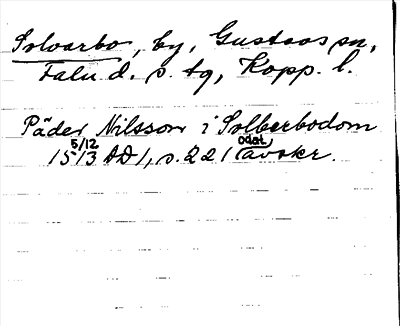 Solvarbo, by, Gustaos sn,
Falu d. s. tg, Kopp. l.
Päder Nilsson i Solberbodom
5/12 odat.
1513 DD 1, s. 221 avskr.